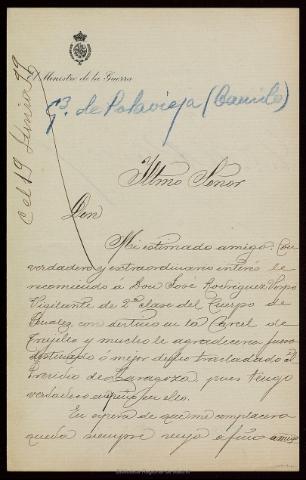 El Ministro de la Guerra
C el 19 Junio 99
Gl. de Polavieja (Camilo)
Iltmo Señor
Don
Mi estimado amigo: Con
verdadero y extraordinario interés le
recomiendo á Don José Rodríguez Crespo
Vigilante de 2ª clase del Cuerpo de
Penales con destino en la Carcel de
Trujillo y mucho le agradecería fuera
destinado ó mejor dicho trasladado al
Presidio de Zaragoza, pues tengo
verdadero empeño por ello.
En espera de que me complacera
queda siempre suyo affmo amigo